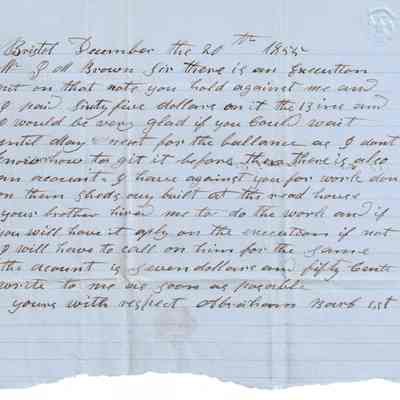 Bristol December the 20th 1855
Mr J M Brown Sir there is an Execution
out on that note you hold against me and
I paid sixty five dollars on it the 13 inc and
I would be very glad if you Could wait
until May &ent for the ballance as I dont
know how to git it before then there is also
an account I have against you for work don
on them sheds my built at the road house
your brother hired me to do the work and if
you will have it aply on the execution if not
I will have to call on him for the same
the acount is seven dollars and fifty Cents
write to me as soon as posable
yours with respect Abraham